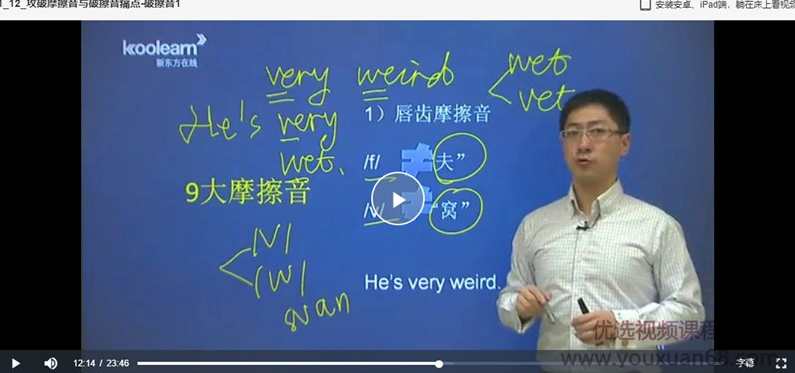 1_12_攻破摩擦音与破擦音痛点-破擦音1
安装安卓、iPad端，躺在床上看视频
koolearn
新东方在线
very weird
wet
vet
He's very
wet.
1）唇齿摩擦音
/f/ ≠ 夫”
/v/ “窝”
9大摩擦音
/v/
/w/
He's very weird.
优选视频课程
www.youxuan68.com
12:14 / 23:46
字幕